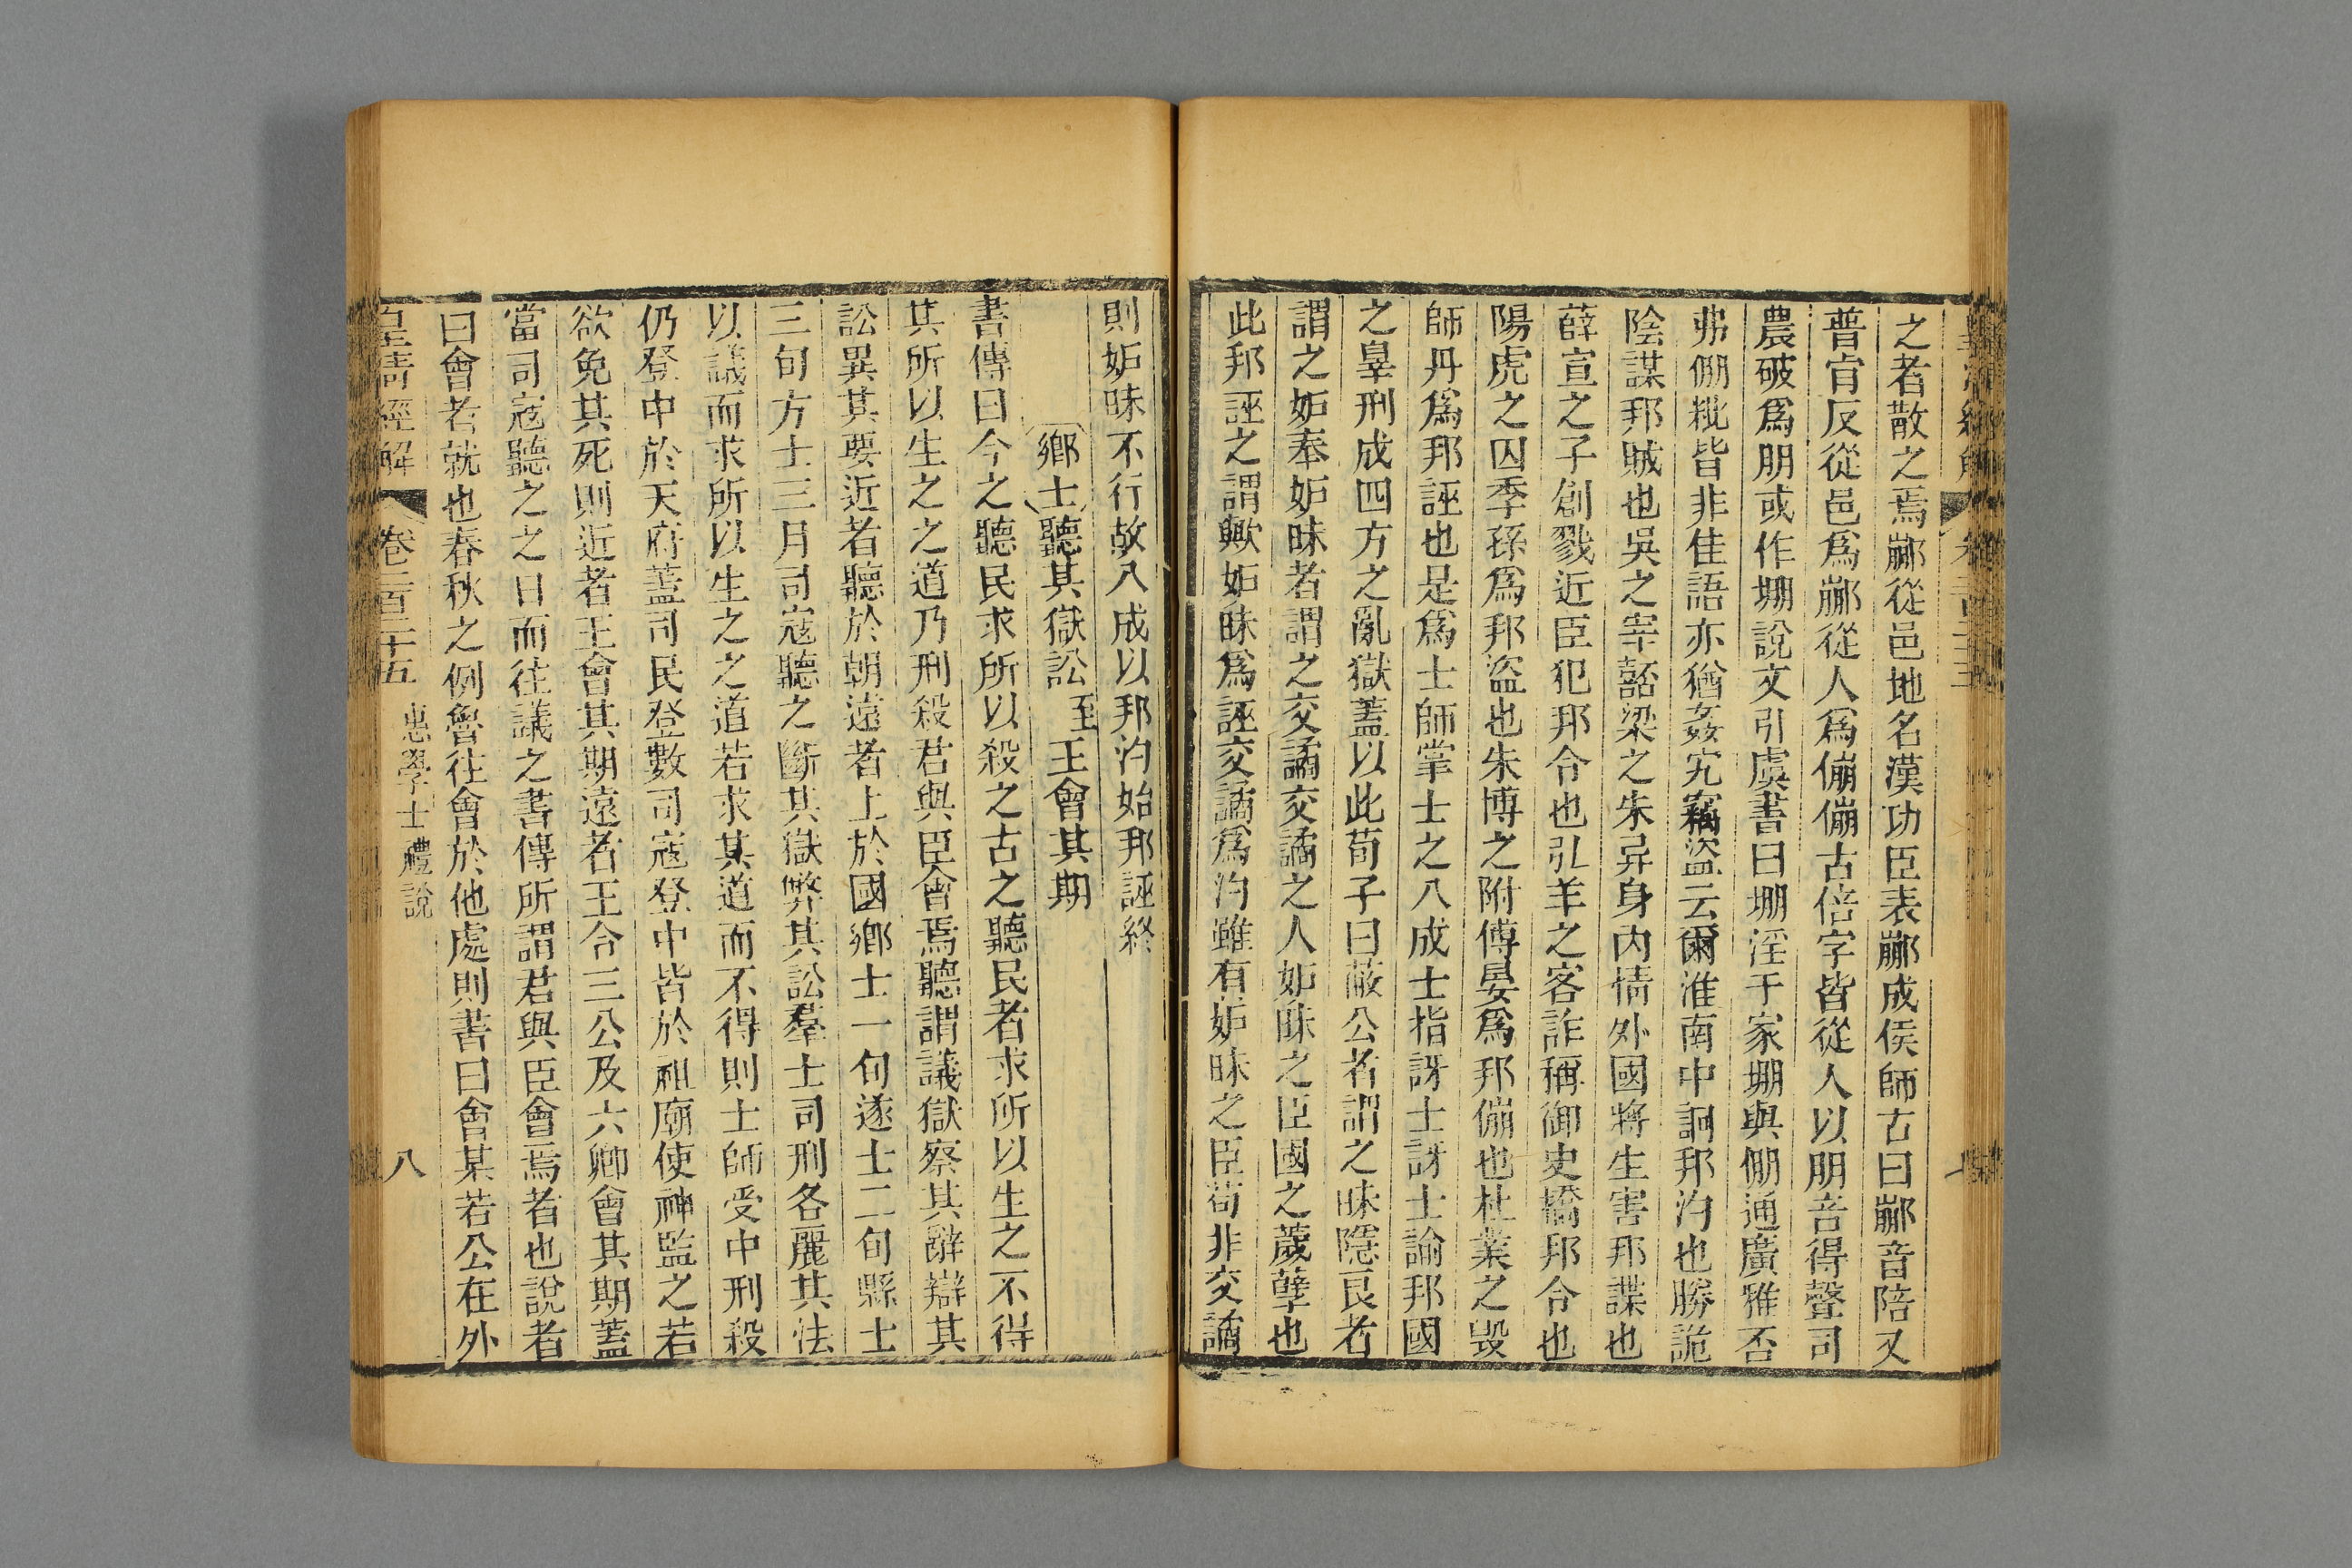 之者散之焉䣙從邑地名漢功臣表䣙成侯師古曰䣙音陪又
普肯反從邑爲䣙從人爲傰傰古倍字皆從人以朋音得聲司
農破爲朋或作堋說文引虞書曰堋淫于家堋與倗通廣雅否
弗倗粃皆非佳語亦猶姦宄竊盜云爾淮南中詗邦汋也勝詭
陰謀邦賊也吳之宰嚭梁之朱异身內情外國將生害邦諜也
薛宣之子創戮近臣犯邦令也弘羊之客詐稱御史撟邦令也
陽虎之囚季孫爲邦盜也朱博之附傅晏爲邦傰也杜業之毁
師丹爲邦誣也是爲士師掌士之八成士指訝士訝士諭邦國
之辠刑成四方之亂獄蓋以此荀子曰蔽公者謂之昧隱良者
謂之妬奉妬昧者謂之交譎交譎之人妬昧之臣國之薉孽也
此邦誣之謂歟妬昧爲誣交譎爲汋雖有妬昧之臣苟非交譎
則妬昧不行故八成以邦汋始邦誣終
鄉士聽其獄訟至王會其期
書傳曰今之聽民求所以殺之古之聽民者求所以生之不得
其所以生之之道乃刑殺君與臣會焉聽謂議獄察其辭辯其
訟異其要近者聽於朝遠者上於國鄉士一旬遂士二旬縣士
三旬方士三月司寇聽之斷其獄弊其訟羣士司刑各麗其法
以議而求所以生之之道若求其道而不得則士師受中刑殺
仍登中於天府蓋司民登數司寇登中皆於祖廟使神監之若
欲免其死則近者王會其期遠者王令三公及六卿會其期蓋
當司寇聽之之日而往議之書傳所謂君與臣會焉者也說者
曰會者就也春秋之例魯往會於他處則書曰會某若公在外
皇淸經解 卷二百二十五 惠學士禮說 八